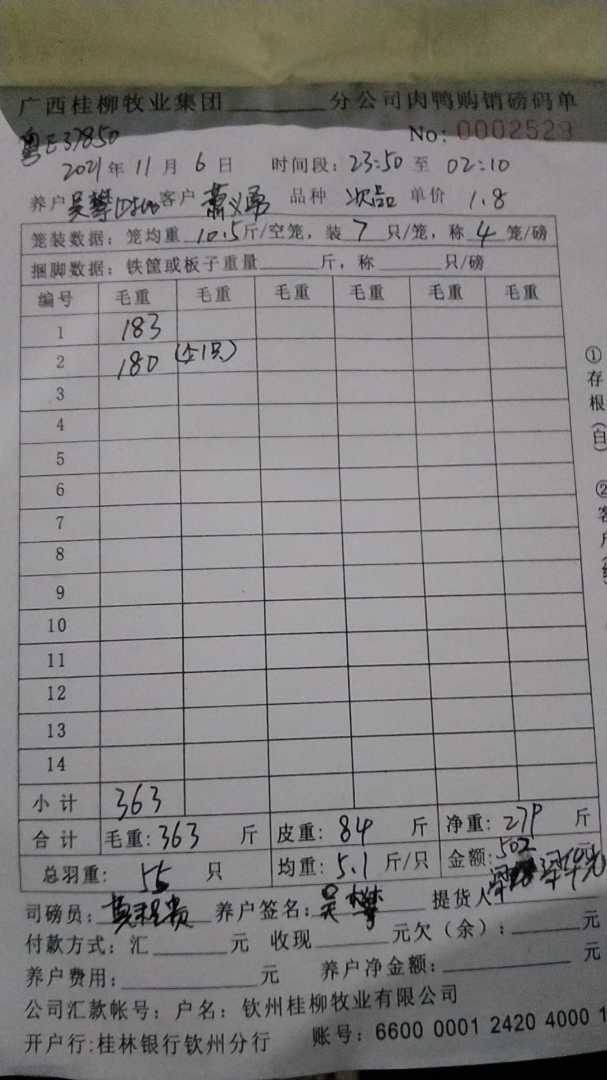 广西桂柳牧业集团________分公司肉鸭购销磅码单
粤E37850 No: 0002529
2021年11月6日 时间段: 23:50至02:10
养户吴攀 客户萧义勇 品种次品 单价1.8
笼装数据: 笼均重10.5斤/空笼, 装7只/笼, 称4笼/磅
捆脚数据: 铁筐或板子重量______斤, 称______只/磅
编号 毛重 毛重 毛重 毛重 毛重 毛重
1 183
2 180 (1只)
3
4
5
6
7
8
9
10
11
12
13
14
小计 363
合计 毛重: 363斤 皮重: 84斤 净重: 279斤
总羽重: 55只 均重: 5.1斤/只 金额: 502元
司磅员: 养户签名: 吴攀 提货人
付款方式: 汇______元 收现______元欠(余): ______元
养户费用: ______元 养户净金额: ______元
公司汇款帐号: 户名: 钦州桂柳牧业有限公司
开户行:桂林银行钦州分行 账号: 6600 0001 2420 4000 1
①存根(白)
②客户(